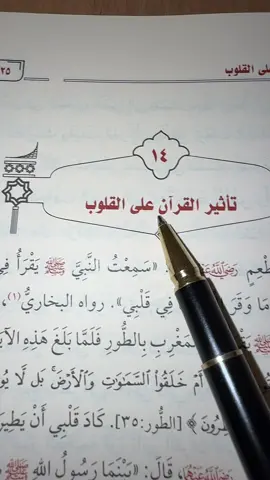 على القلوب
١٤
تأثير القرآن على القلوب
«سَمِعْتُ النَّبِيَّ ﷺ يَقْرَأُ فِي
فِي قَلْبِي». رواه البخاريُّ (١)
بِالطُّورِ فَلَمَّا بَلَغَ هَذِهِ
أَمْ خَلَقُوا السَّمَوَتِ وَالْأَرْضَ بَل لَّا
[الطور:٣٥]. كَادَ قَلْبِي أَنْ
قَالَ: «بَيْنَمَا رَسُولُ اللهِ ﷺ